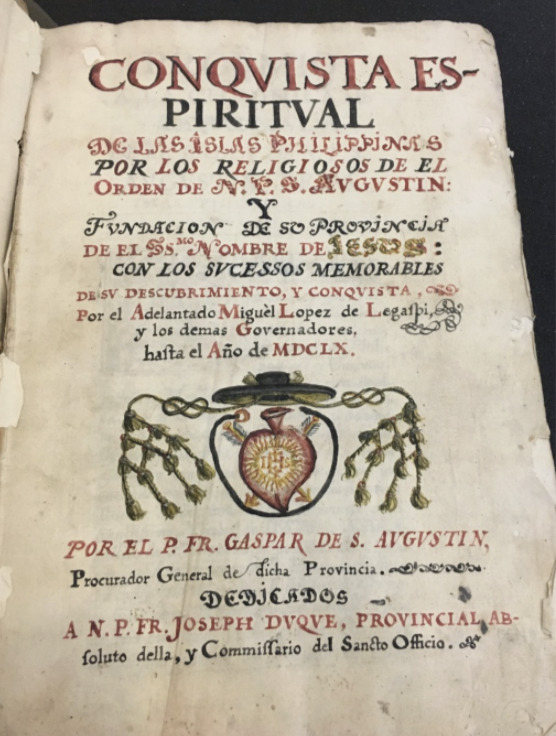 CONQVISTA ES-
PIRITVAL
DE LAS ISLAS PHILIPPINAS
POR LOS RELIGIOSOS DE EL
ORDEN DE N. P. S. AVGVSTIN:
Y
FVNDACION DE SU PROVINCIA
DE EL SS.MO NOMBRE DE IESUS:
CON LOS SVCESSOS MEMORABLES
DE SV DESCUBRIMIENTO, Y CONQVISTA,
Por el Adelantado Miguèl Lopez de Legaspi,
y los demas Governadores,
hasta el Año de MDCLX.
IHS
POR EL P. FR. GASPAR DE S. AVGVSTIN,
Procurador General de dicha Provincia.
DEDICADOS
A N. P. FR. JOSEPH DVQVE, PROVINCIAL AB-
soluto della, y Commissario del Sancto Officio.